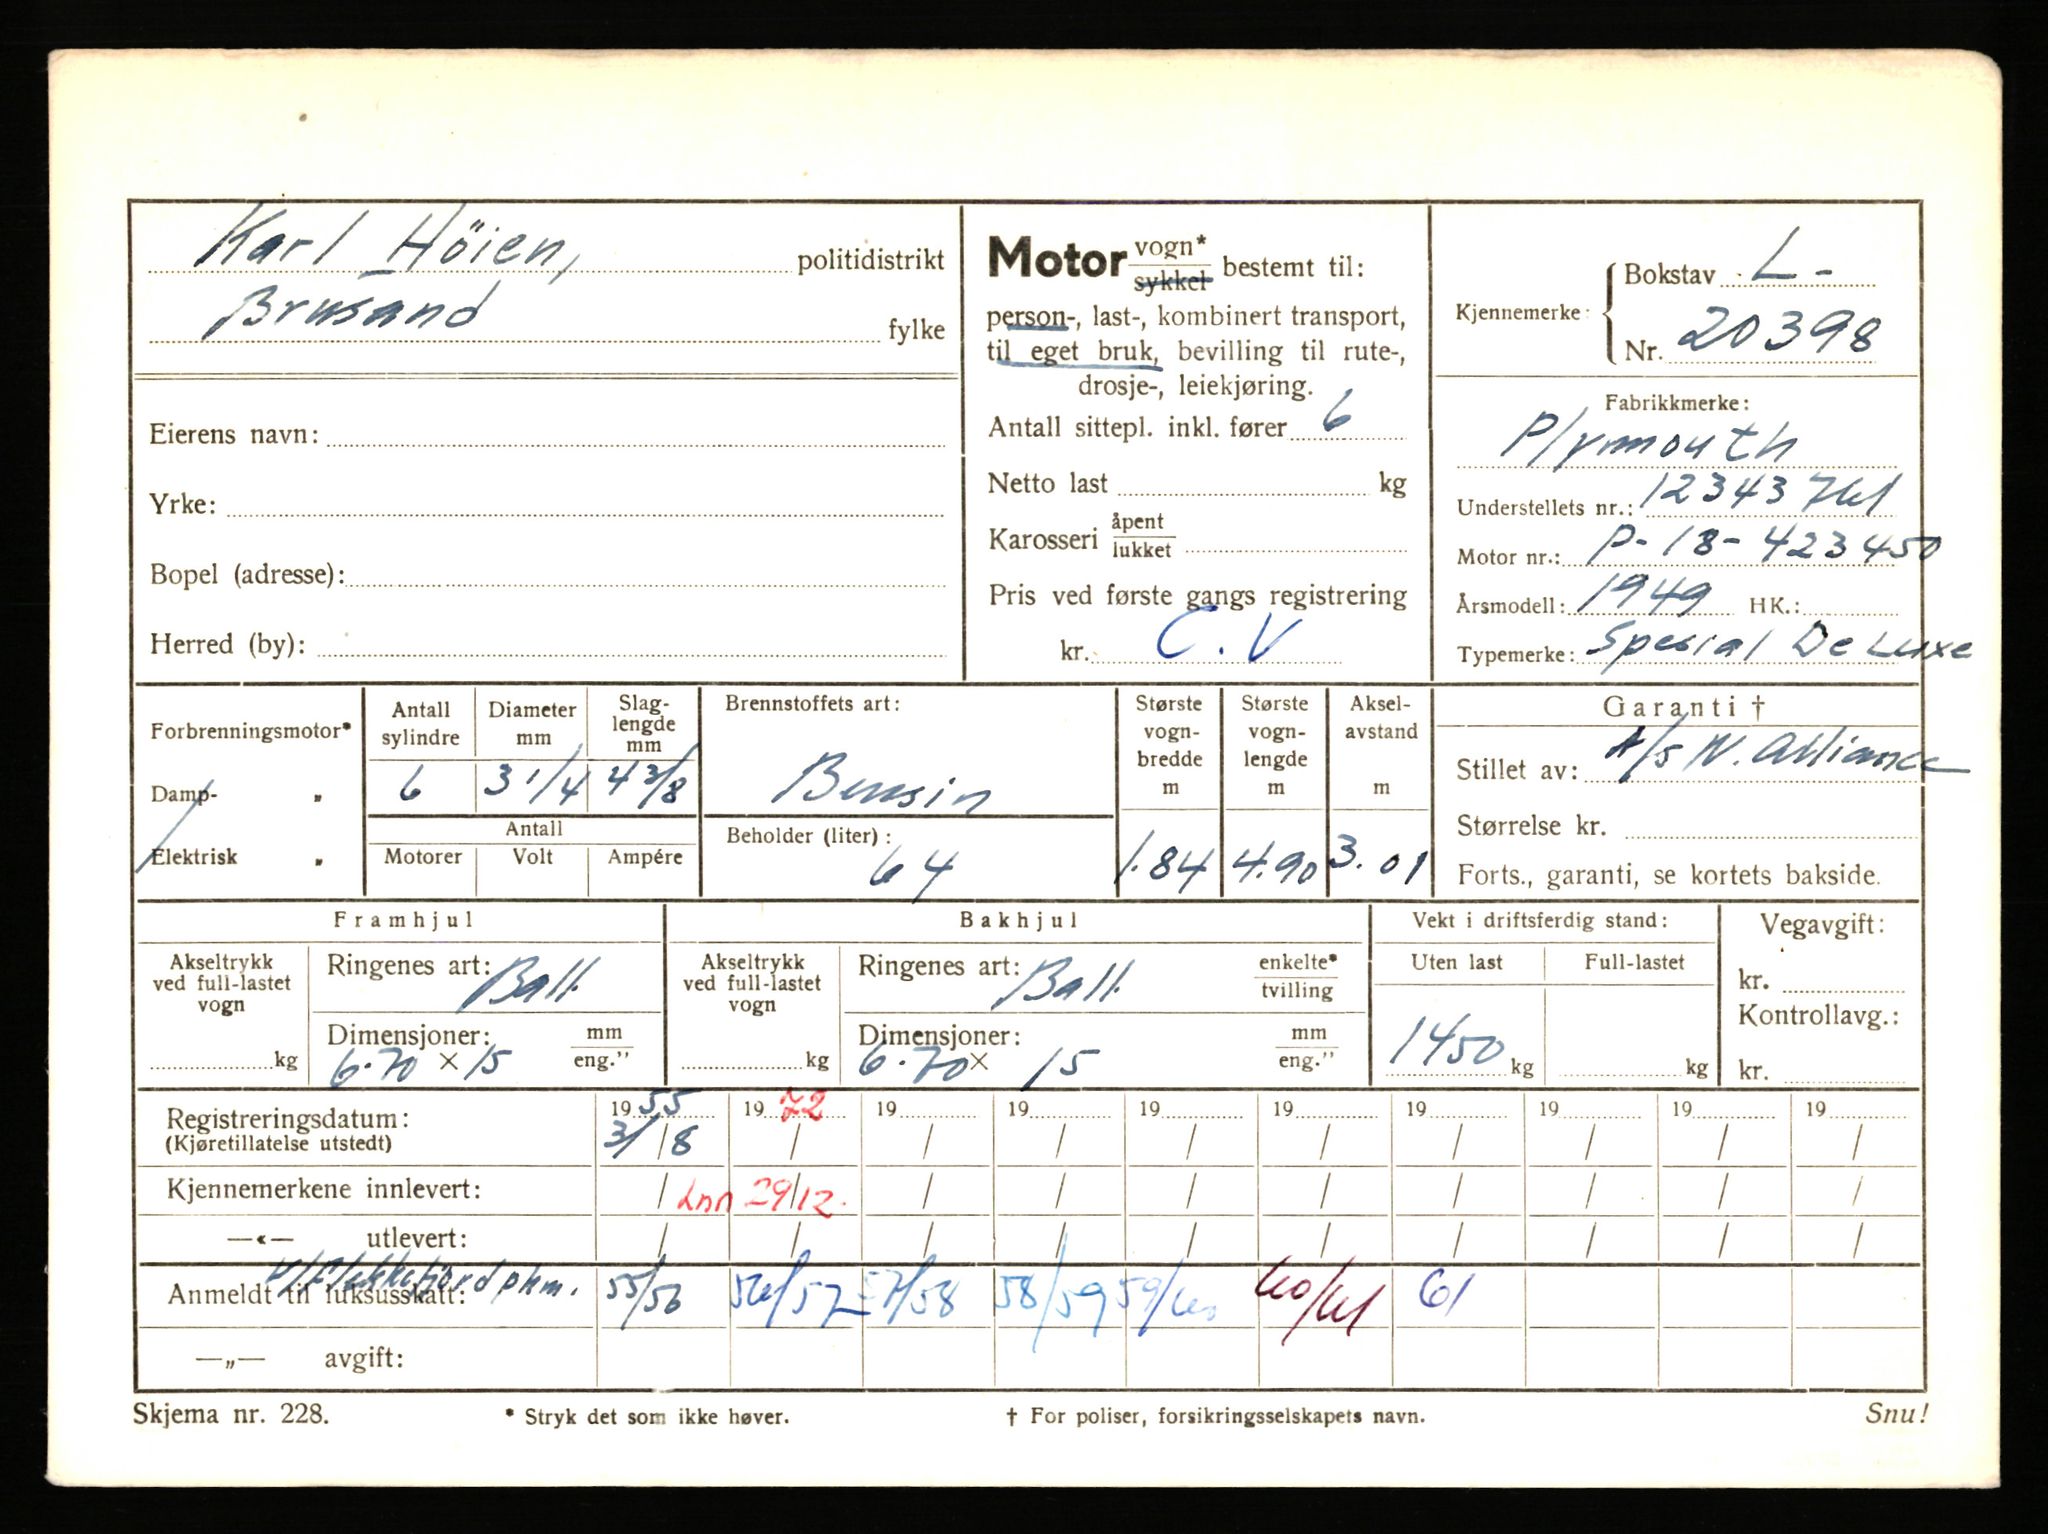 Karl Höien, politidistrikt
Brusand fylke
Eierens navn:
Yrke:
Bopel (adresse):
Herred (by):
Motor vogn* sykkel bestemt til:
person-, last-, kombinert transport,
til eget bruk, bevilling til rute-,
drosje-, leiekjøring.
Antall sittepl. inkl. fører 6
Netto last kg
Karosseri åpent lukket
Pris ved første gangs registrering
kr. C.V
Kjennemerke: Bokstav L-
Nr. 20398
Fabrikkmerke:
Plymouth
Understellets nr.: 12343761
Motor nr.: P-18-423450
Årsmodell: 1949 HK.:
Typemerke: Spesial De Luxe
Forbrenningsmotor*
Damp- „
Elektrisk „
Antall sylindre
Diameter mm
Slaglengde mm
6 3 1/4 4 3/8
Antall
Motorer Volt Ampére
Brennstoffets art:
Bensin
Beholder (liter):
64
Største vognbredde m
1.84
Største vognlengde m
4.90
Akselavstand m
3.01
Garanti †
Stillet av: A/S N. Alliance
Størrelse kr.
Forts., garanti, se kortets bakside.
Framhjul
Akseltrykk ved full-lastet vogn
kg
Ringenes art: Ball.
Dimensjoner: mm eng.”
6.70 × 15
Bakhjul
Akseltrykk ved full-lastet vogn
kg
Ringenes art: Ball. enkelte* tvilling
Dimensjoner: mm eng.”
6.70 × 15
Vekt i driftsferdig stand:
Uten last Full-lastet
1450 kg kg
Vegavgift:
kr.
Kontrollavg.:
kr.
Registreringsdatum: 1955 1972 19 19 19 19 19 19 19 19
(Kjøretillatelse utstedt) 3/8 / / / / / / / / /
Kjennemerkene innlevert: / Inn 29/12. / / / / / / / /
—«— utlevert: / / / / / / / / / /
V/Flekkefjord pkm.
Anmeldt til luksusskatt: 55/56 56/57 57/58 58/59 59/60 60/61 61
—„— avgift:
Skjema nr. 228. * Stryk det som ikke høver. † For poliser, forsikringsselskapets navn. Snu!